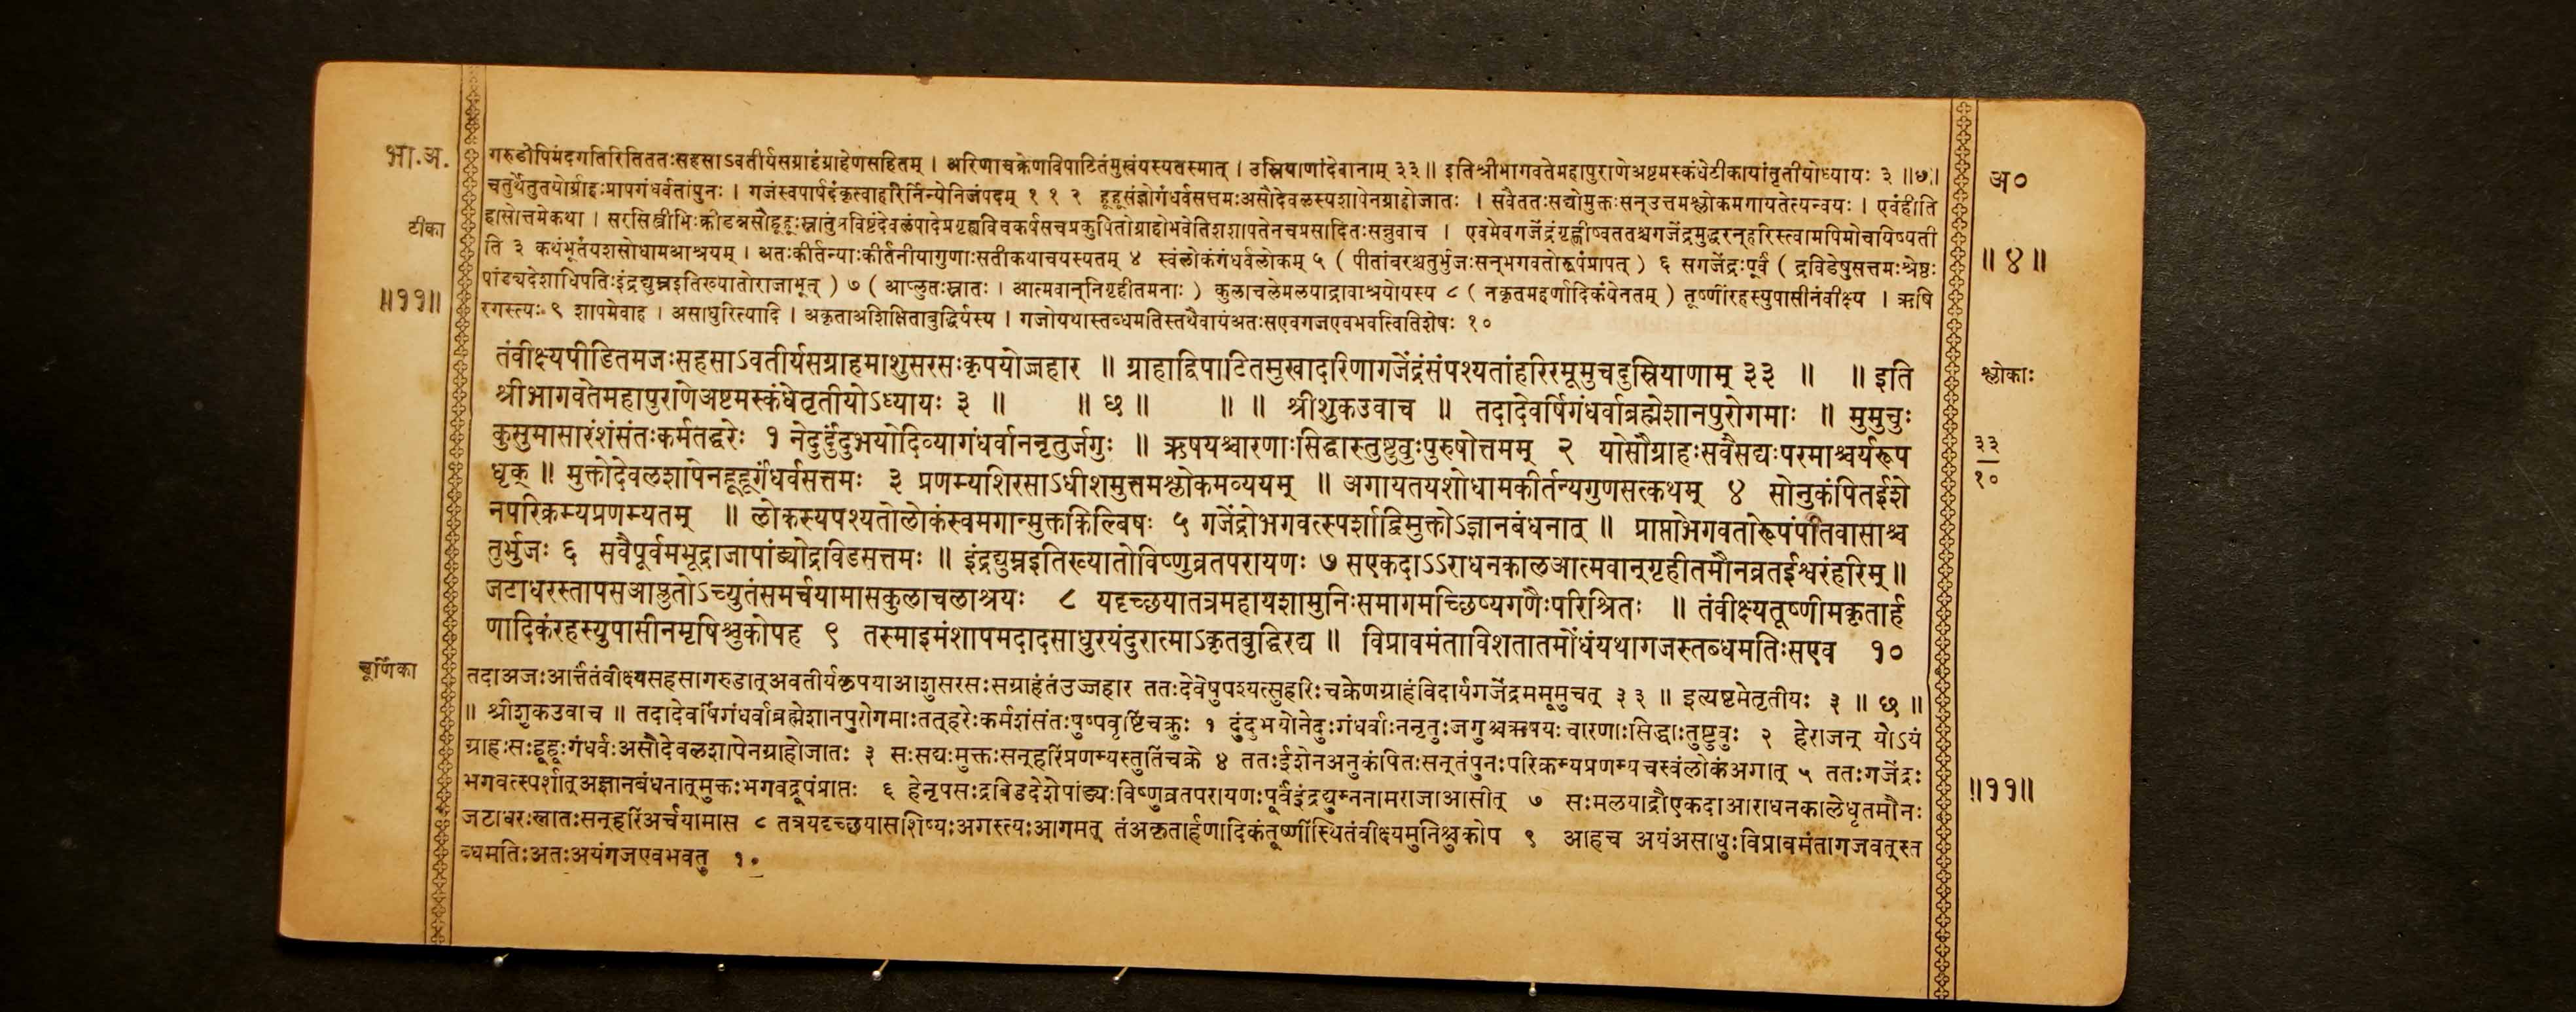 भा.अ.
गरुडोपिमंदगतिरितिततःसहसाऽवतीर्यसग्राहंग्राहेणसहितम् । अरिणाचक्रेणविपाटितंमुखंयस्यतस्मात् । उस्रियाणांदेवानाम् ३३ ॥ इतिश्रीभागवतेमहापुराणेअष्टमस्कंधेटीकायांतृतीयोध्यायः ३ ॥७॥
अ०
चतुर्थेतुतयोर्ग्राहःप्रापगंधर्वतांपुनः । गजंस्वपार्षदंकृत्वाहरिर्निन्येनिजंपदम् १ १ २ हूहूसंज्ञोगंधर्वसत्तमःअसौदेवलस्यशापेनग्राहोजातः । सवैततःसद्योमुक्तःसन्उत्तमश्लोकमगायतेत्यन्वयः । एवंहीति
टीका
हासोत्तमेकथा । सरसिस्त्रीभिःक्रीडन्नसौहूहूःस्नातुंप्रविष्टंदेवलंपादेप्रगृह्यविचकर्षसचप्रकुपितोग्राहोभवेतिशशापतेनचप्रसादितःसन्नुवाच । एवमेवगजेंद्रंगृह्णीष्वततश्चगजेंद्रमुद्धरन्हरिस्त्वामपिमोचयिष्यती
ति ३ कथंभूतंयशसोधामआश्रयम् । अतःकीर्तन्याःकीर्तनीयागुणाःसतीकथाचयस्यतम् ४ स्वंलोकंगंधर्वलोकम् ५ ( पीतांबरश्चतुर्भुजःसन्भगवतोरूपंप्रापत् ) ६ सगजेंद्रःपूर्वं ( द्रविडेषुसत्तमःश्रेष्ठः
॥ ४ ॥
पांड्यदेशाधिपतिःइंद्रद्युम्नइतिख्यातोराजाभूत् ) ७ ( आप्लुतःस्नातः । आत्मवान्निगृहीतमनाः ) कुलाचलेमलयाद्रावाश्रयोयस्य ८ ( नकृतमर्हणादिकंयेनतम् ) तूष्णींरहस्युपासीनंवीक्ष्य । ऋषि
॥११॥
रगस्त्यः ९ शापमेवाह । असाधुरित्यादि । अकृताअशिक्षिताबुद्धिर्यस्य । गजोयथास्तब्धमतिस्तथैवायंअतःसएवगजएवभवत्वितिशेषः १०
तंवीक्ष्यपीडितमजःसहसाऽवतीर्यसग्राहमाशुसरसःकृपयोज्जहार ॥ ग्राहाद्विपाटितमुखादरिणागजेंद्रंसंपश्यतांहरिरमूमुचदुस्रियाणाम् ३३ ॥ ॥ इति
श्लोकाः
श्रीभागवतेमहापुराणेअष्टमस्कंधेतृतीयोऽध्यायः ३ ॥ ॥ छ ॥ ॥ ॥ श्रीशुकउवाच ॥ तदादेवर्षिगंधर्वाब्रह्मेशानपुरोगमाः ॥ मुमुचुः
कुसुमासारंशंसंतःकर्मतद्धरेः १ नेदुर्दुंदुभयोदिव्यागंधर्वाननृतुर्जगुः ॥ ऋषयश्चारणाःसिद्धास्तुष्टुवुःपुरुषोत्तमम् २ योसौग्राहःसवैसद्यःपरमाश्चर्यरूप
३३
१०
धृक् ॥ मुक्तोदेवलशापेनहूहूर्गंधर्वसत्तमः ३ प्रणम्यशिरसाऽधीशमुत्तमश्लोकमव्ययम् ॥ अगायतयशोधामकीर्तन्यगुणसत्कथम् ४ सोनुकंपितईशे
नपरिक्रम्यप्रणम्यतम् ॥ लोकस्यपश्यतोलोकंस्वमगान्मुक्तकिल्बिषः ५ गजेंद्रोभगवत्स्पर्शाद्विमुक्तोऽज्ञानबंधनात् ॥ प्राप्तोभगवतोरूपंपीतवासाश्च
तुर्भुजः ६ सवैपूर्वमभूद्राजापांड्योद्रविडसत्तमः ॥ इंद्रद्युम्नइतिख्यातोविष्णुव्रतपरायणः ७ सएकदाऽऽराधनकालआत्मवान्गृहीतमौनव्रतईश्वरंहरिम् ॥
जटाधरस्तापसआप्लुतोऽच्युतंसमर्चयामासकुलाचलाश्रयः ८ यदृच्छयातत्रमहायशामुनिःसमागमच्छिष्यगणैःपरिश्रितः ॥ तंवीक्ष्यतूष्णीमकृतार्ह
णादिकंरहस्युपासीनमृषिश्चुकोपह ९ तस्माइमंशापमदादसाधुरयंदुरात्माऽकृतबुद्धिरद्य ॥ विप्रावमंताविशतातमोंधंयथागजस्तब्धमतिःसएव १०
चूर्णिका
तदाअजःआर्त्तंतंवीक्ष्यसहसागरुडात्अवतीर्यकृपयाआशुसरसःसग्राहंतंउज्जहार ततःदेवेषुपश्यत्सुहरिःचक्रेणग्राहंविदार्यगजेंद्रममूमुचत् ३३ ॥ इत्यष्टमेतृतीयः ३ ॥ छ ॥
॥ श्रीशुकउवाच ॥ तदादेवर्षिगंधर्वाब्रह्मेशानपुरोगमाःतत्हरेःकर्मशंसंतःपुष्पवृष्टिंचक्रुः १ दुंदुभयोनेदुःगंधर्वाःननृतुःजगुश्चऋषयःचारणाःसिद्धाःतुष्टुवुः २ हेराजन् योऽयं
ग्राहःसःहूहूःगंधर्वःअसौदेवलशापेनग्राहोजातः ३ सःसद्यःमुक्तःसन्हरिंप्रणम्यस्तुतिंचक्रे ४ ततःईशेनअनुकंपितःसन्तंपुनःपरिक्रम्यप्रणम्यचस्वंलोकंअगात् ५ ततःगजेंद्रः
भगवत्स्पर्शात्अज्ञानबंधनात्मुक्तःभगवद्रूपंप्राप्तः ६ हेनृपसःद्रविडदेशेपांड्यःविष्णुव्रतपरायणःपूर्वंइंद्रद्युम्ननामराजाआसीत् ७ सःमलयाद्रौएकदाआराधनकालेधृतमौनः
॥११॥
जटाधरःस्नातःसन्हरिंअर्चयामास ८ तत्रयदृच्छयासशिष्यःअगस्त्यःआगमत् तंअकृतार्हणादिकंतूष्णींस्थितंवीक्ष्यमुनिश्चुकोप ९ आहच अयंअसाधुःविप्रावमंतागजवत्स्त
ब्धमतिःअतःअयंगजएवभवतु १०